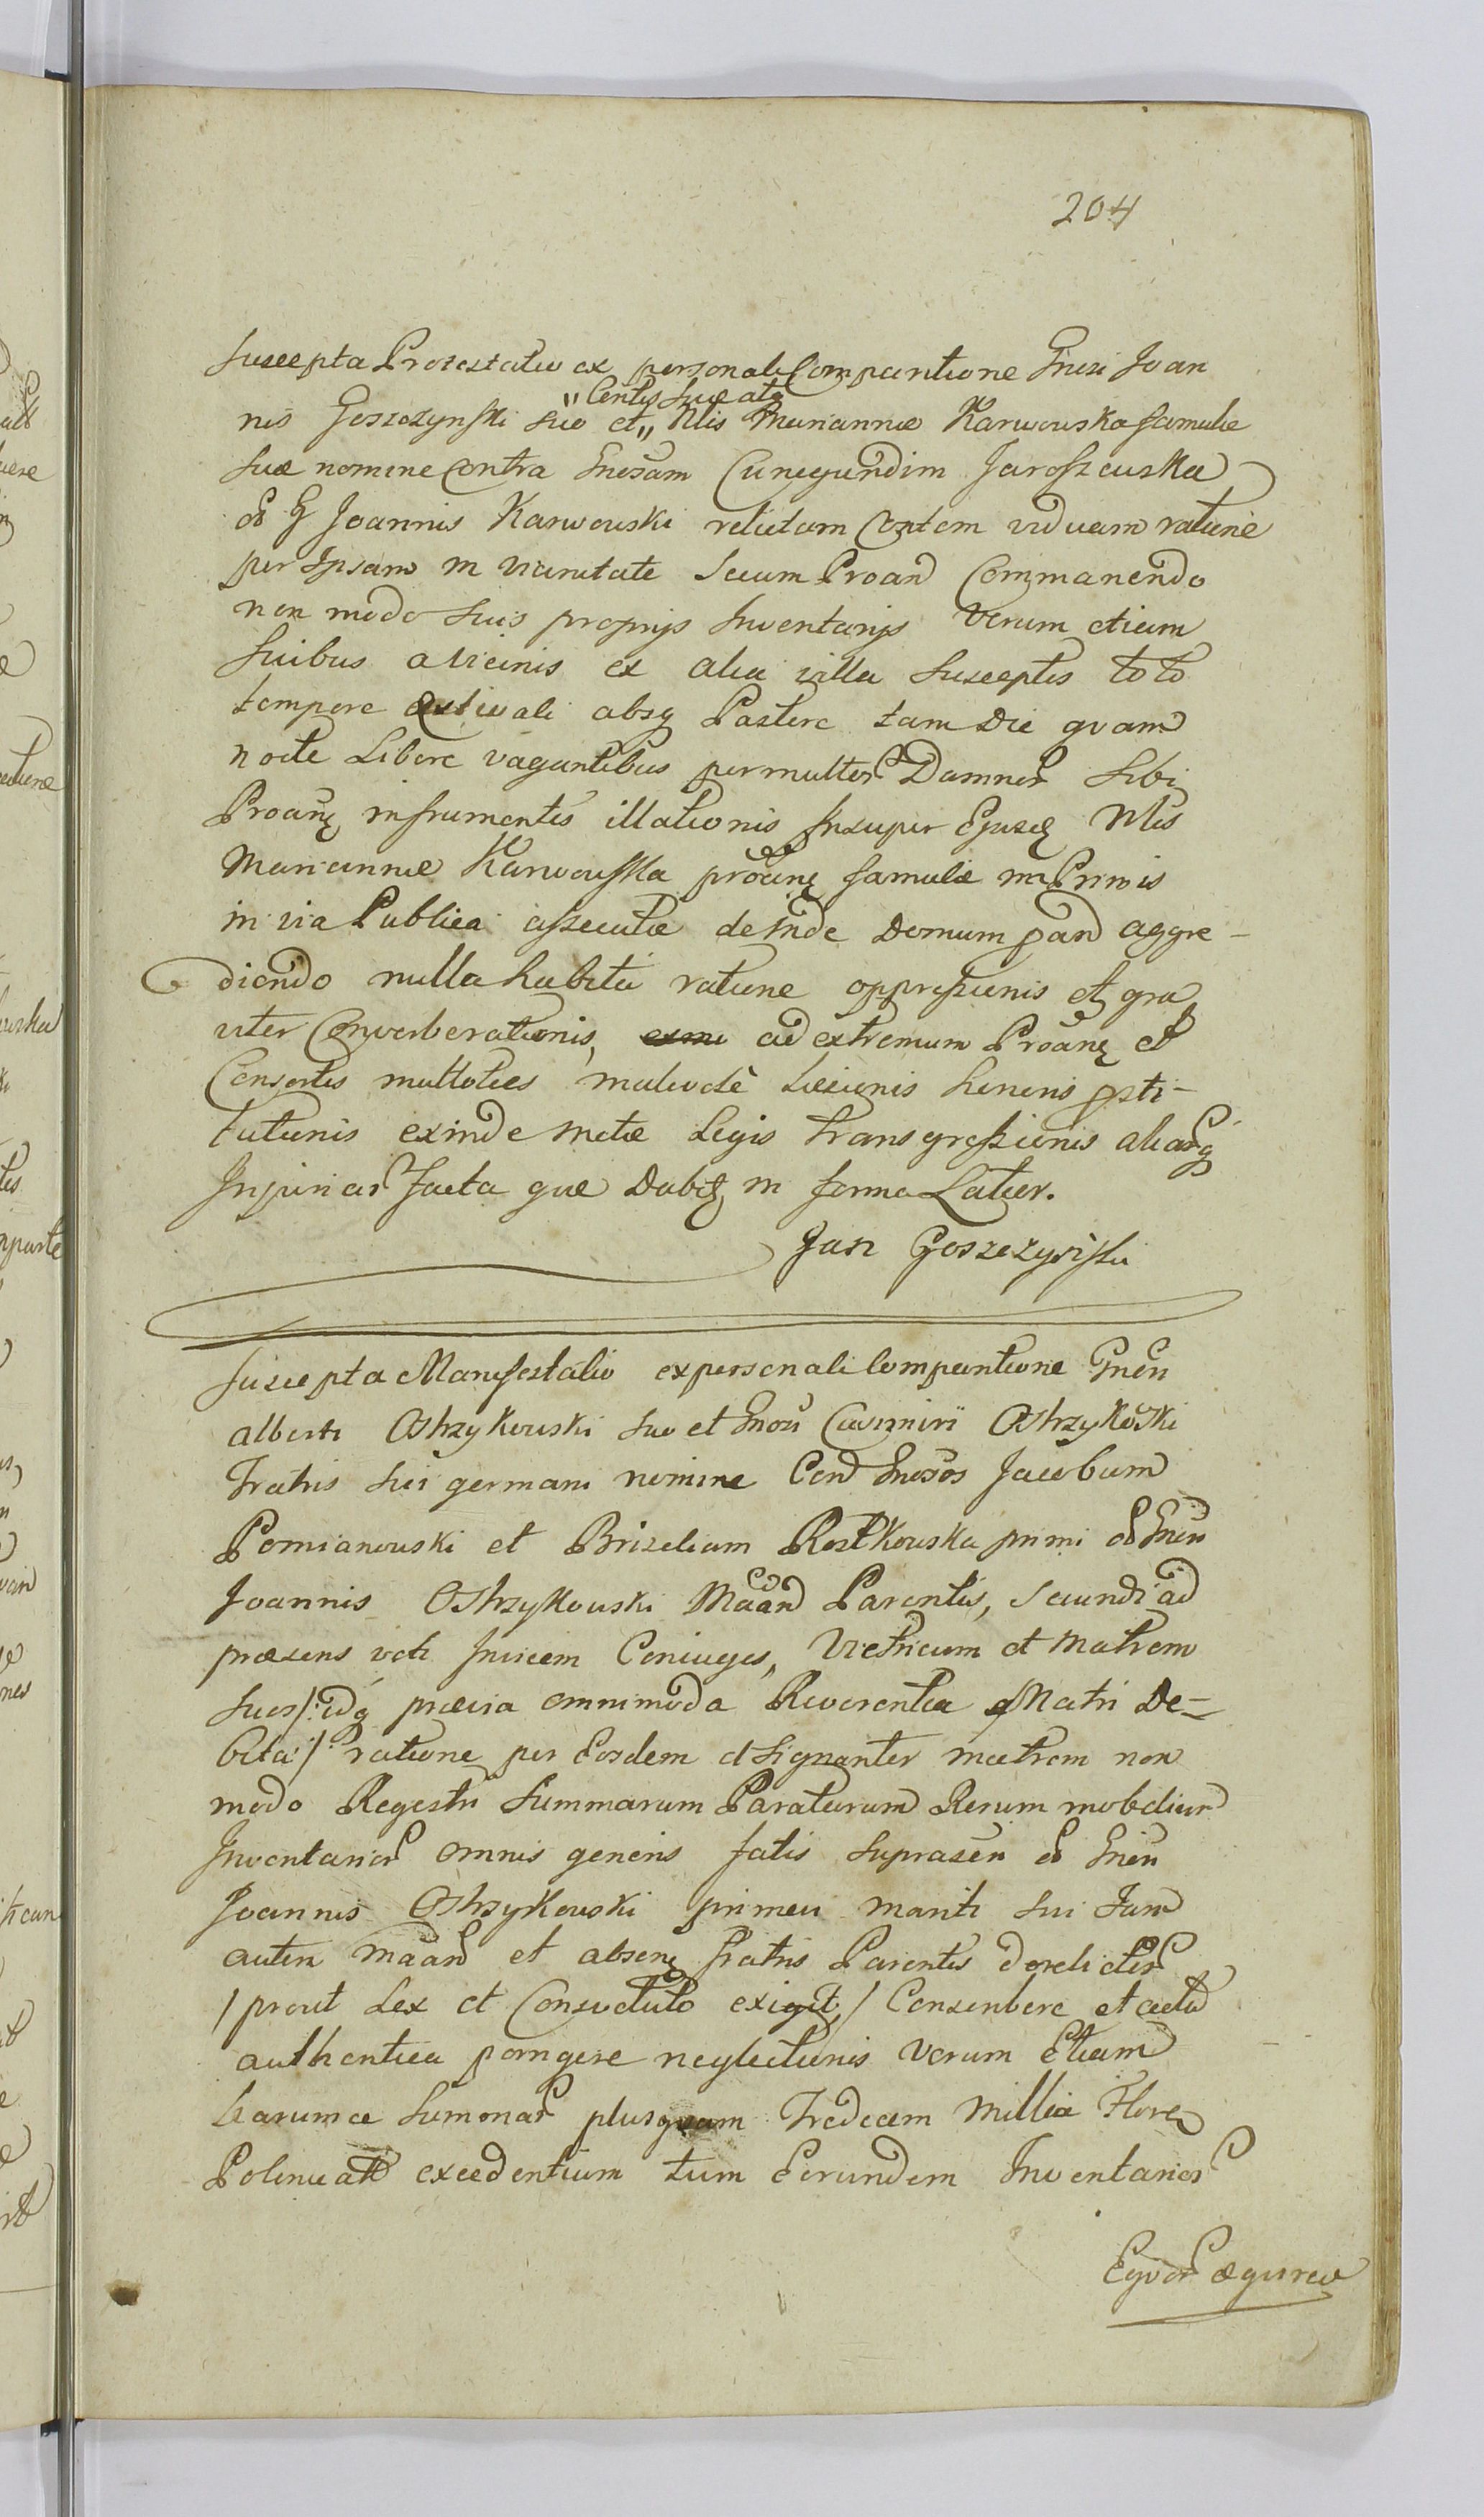 204
Suscepta Protestatio ex personali Comparitione Gnesi Joan
" Contis suæ atq
nis Goszczynski suo et „ Nlis Mariannæ Karwowska famulæ
suæ nomine Contra Gnesam Cunegundim Jaroszewska
Joannis Karwowski relictam Contem viduam ratiõne
per Ipsam in vicinitate secum Proand Commanendo
non modo suis proprijs Inventarijs verum etiam
suibus a vicinis ex alia villa susceptis toto
tempore æstivali absq Pastore tam Die quam
nocte Libere vagantibus permultor Damnor sibi
Proanę in frumentis illationis Insuper Ejusdę Nlis
Mariannæ Karwowska proanę famulæ in Primis
in via Publica assecutæ deinde Domum pand aggre-
diendo nulla habita ratione oppressionis et gra
viter Converberationis, ad extremum Proanę et
Consortis multoties malevolè Læsionis honoris psti-
tutionis exinde metæ Legis transgressionis aliarq
Injuriar facta quæ Dabit in forma Latior.
Jan Goszczyński
Suscepta Manifestatio ex personali Comparitione Gnesi
Alberti Ostrzykowski suo et Gnosi Casimiri Ostrzykõski
Fratris sui germani nomine Con Gnesos Jacobum
Pomianowski et Brizeliam Rostkowska primi
Joannis Ostrzykowski Maand Parentis, secundi ad
præsens voti Invicem Coniuges, Vitricum et Matrem
suos /: idq prævia omnimoda Reverentia Matri De-
bita :/ ratione per Eosdem et signanter matrem non
modo Regestri Summarum Paratarum Rerum mobilium
Inventarior omnis generis fatis suprascn
Joannis Ostrzykowski primevi mariti sui Jam
autem maand et absenę fratris Parentis derelictor
/ prout Lex et Consuetudo exigit / Conscribere et acta
authentica porrigere neglectionis verum Etiam
harumce Summar plusquam Tredecem Millia Floren
Polonical excedentium tum Eorundem Inventarior
Equor æquirea